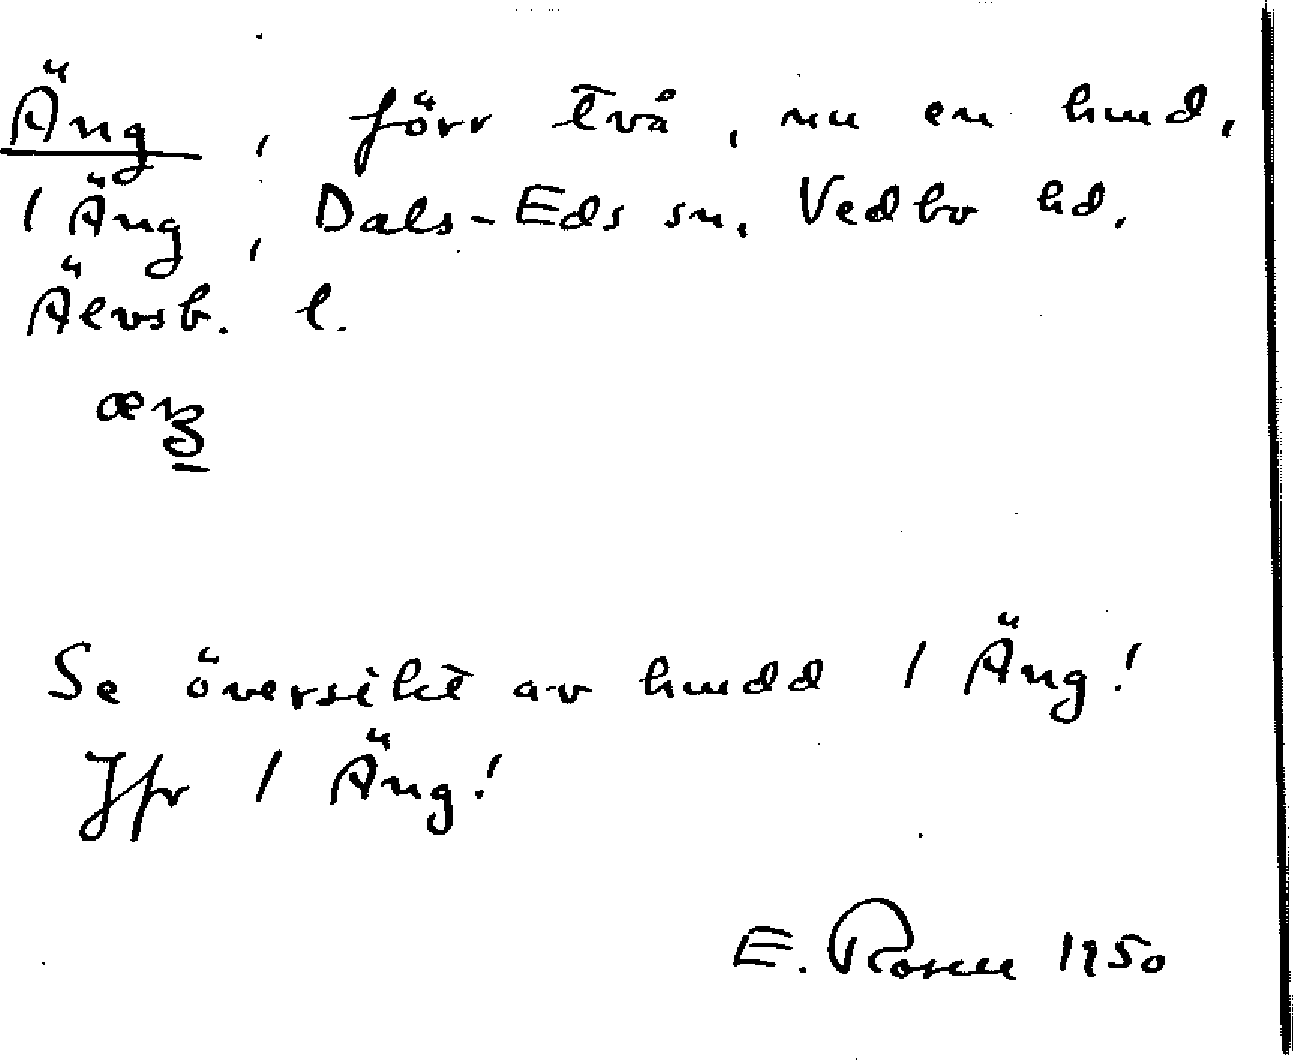 Äng, förr två, nu en hmd,
1 Äng, Dals-Eds sn, Vedbo hd,
Älvsb. l.
Se översikt av hmdd 1 Äng!
Jfr 1 Äng!
E. Rosell 1950